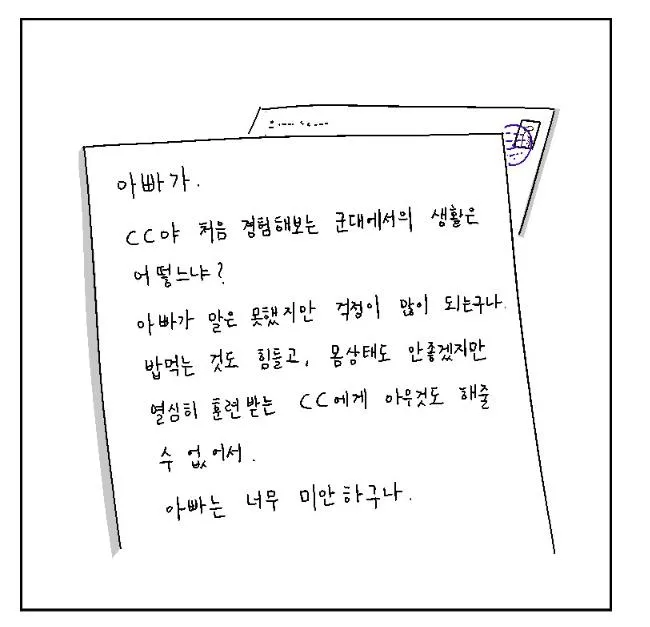 아빠가.
CC야 처음 경험해보는 군대에서의 생활은
어떻느냐?
아빠가 말은 못했지만 걱정이 많이 되는구나.
밥먹는 것도 힘들고, 몸상태도 안좋겠지만
열심히 훈련받는 CC에게 아무것도 해줄
수 없어서.
아빠는 너무 미안하구나.